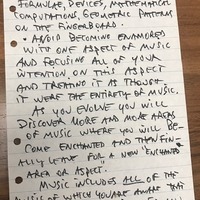 FORMULAE, DEVICES, MATHEMATICAL
COMPUTATIONS, GEOMETRIC PATTERNS
ON THE FINGERBOARD.
• AVOID BECOMING ENAMORED
WITH ONE ASPECT OF MUSIC
AND FOCUSING ALL OF YOUR
INTENTION, ON THIS ASPECT
AND TREATING IT AS THOUGH
IT WERE THE ENTIRETY OF MUSIC.
AS YOU EVOLVE YOU WILL
DISCOVER MORE AND MORE AREAS
OF MUSIC WHERE YOU WILL BE-
COME ENCHANTED AND THEN FIN-
ALLY LEAVE FOR A NEW "ENCHANTED"
AREA OR ASPECT.
MUSIC INCLUDES ALL OF THE
MUSIC OF WHICH YOU ARE AWARE THAT